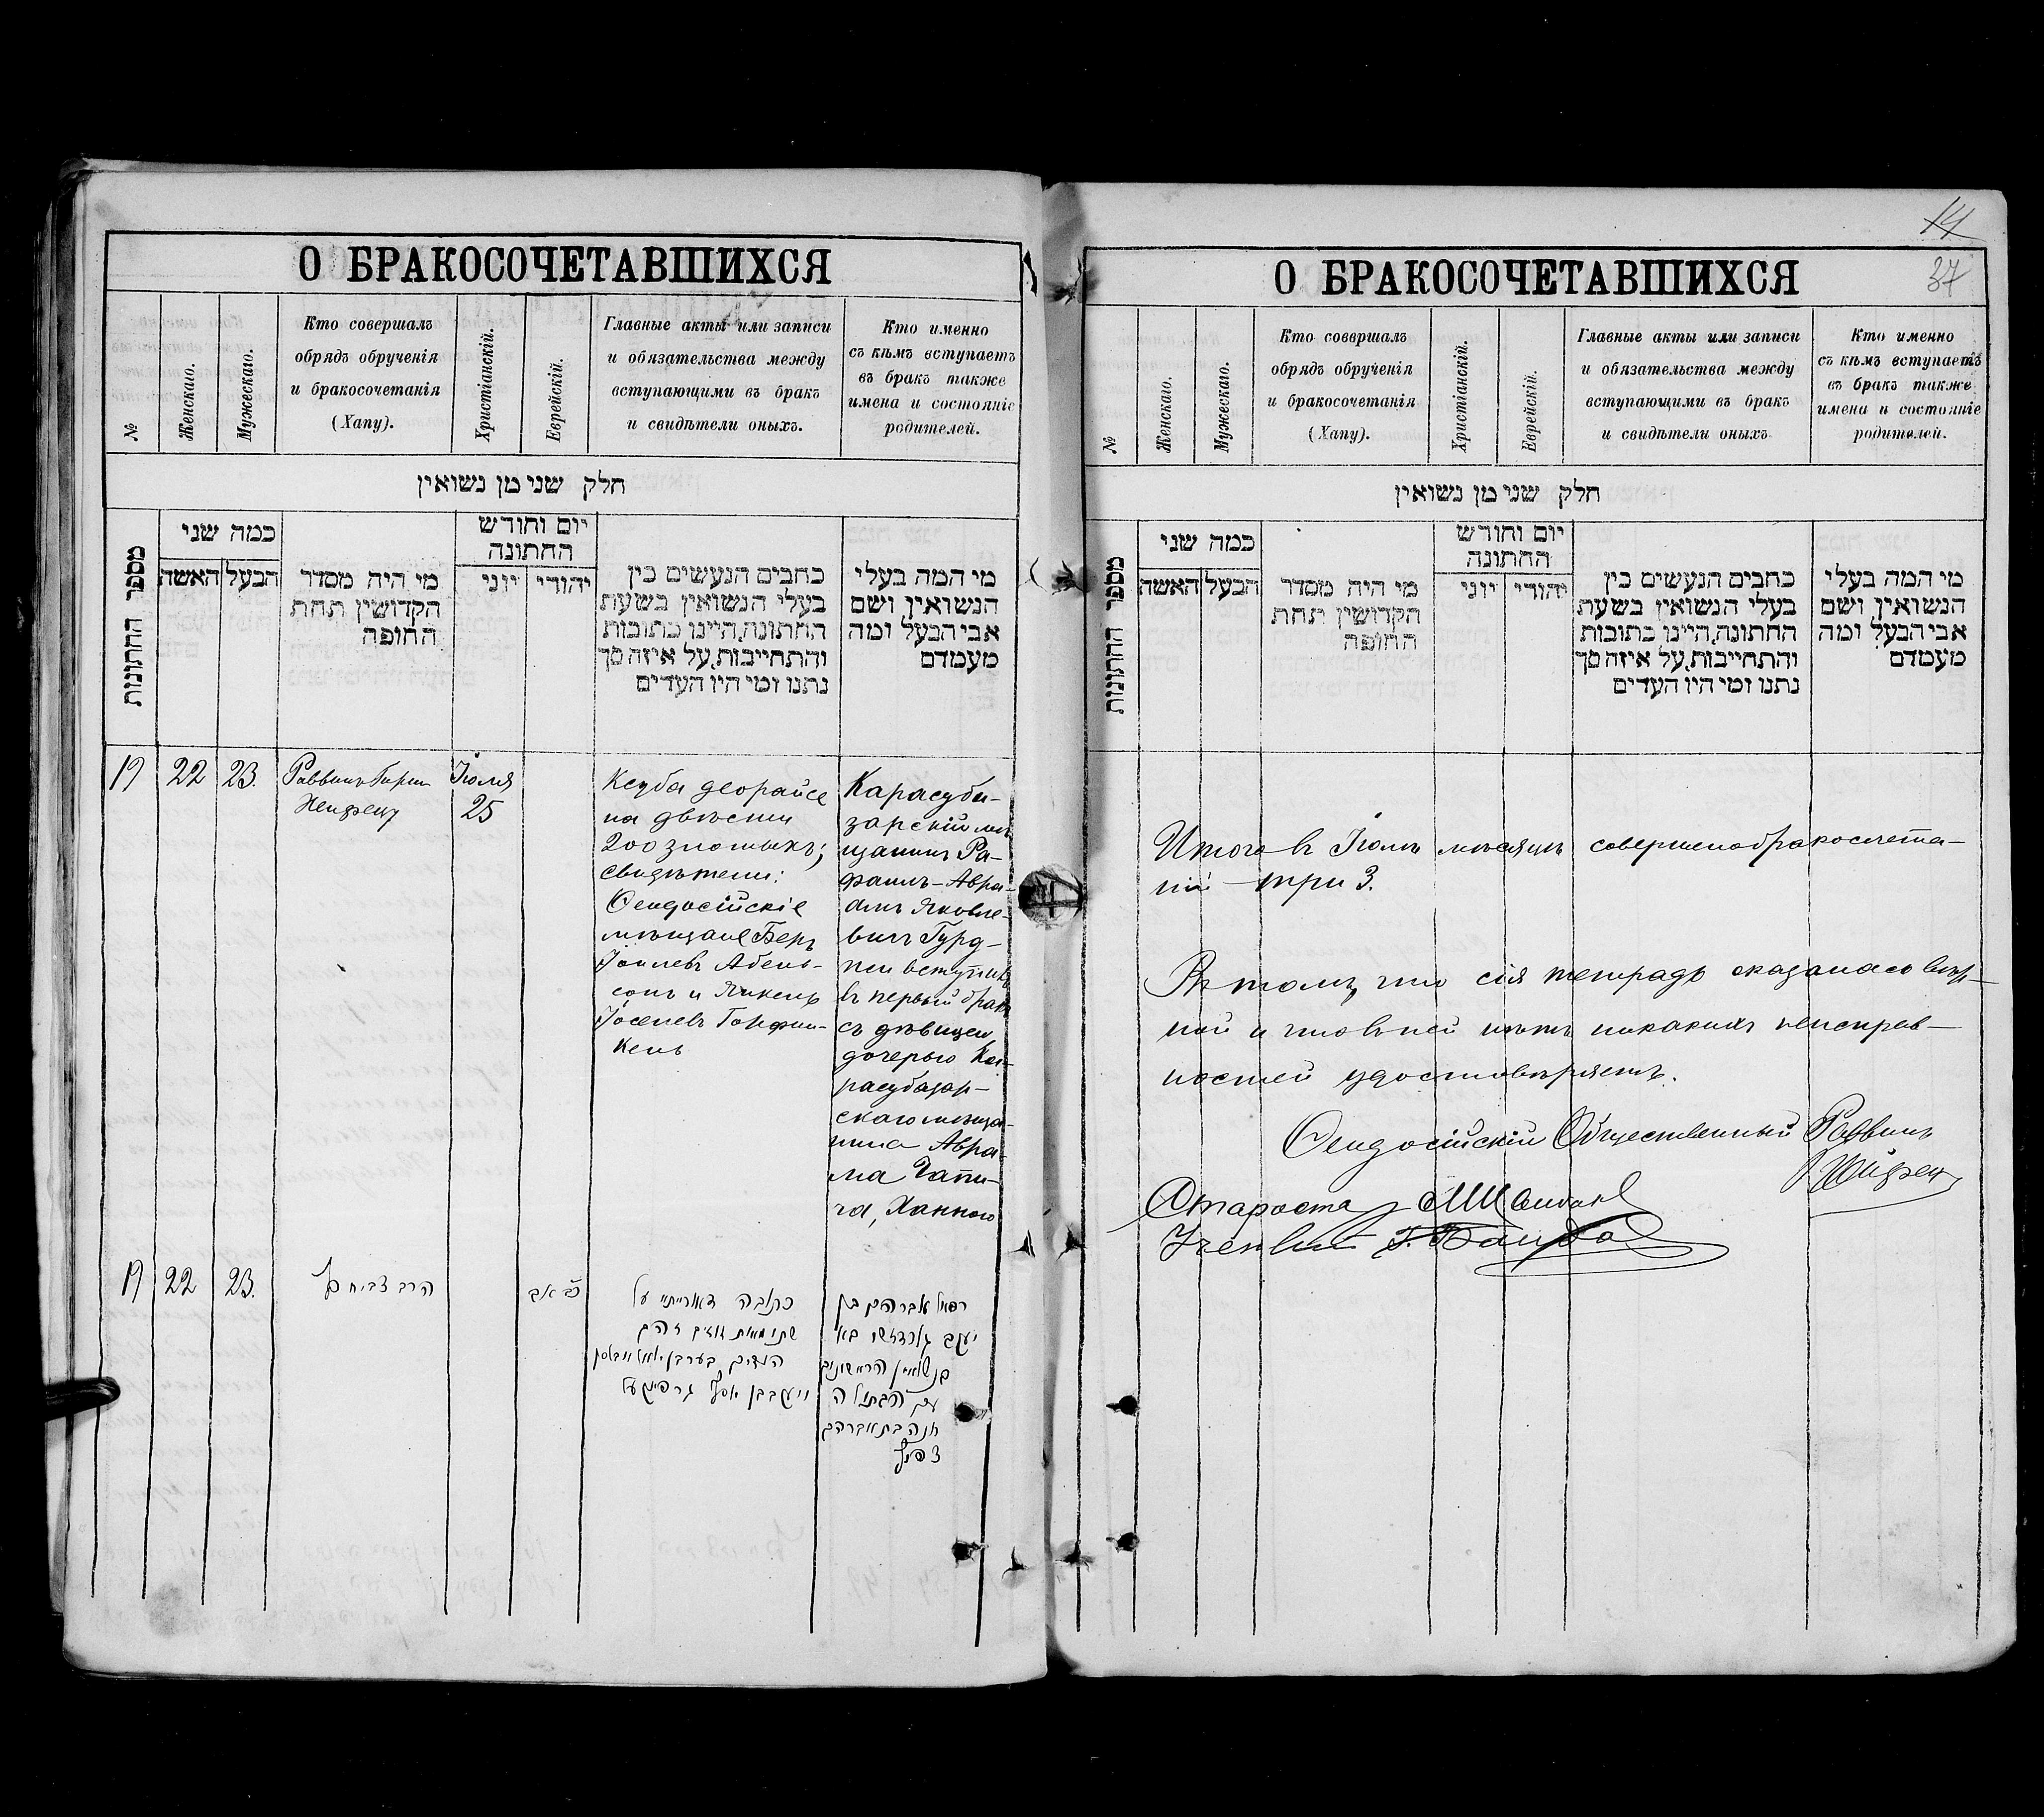 О БРАКОСОЧЕТАВШИХСЯ
№
Женскаго.
Мужескаго.
Кто совершалъ
обрядъ обрученія
и бракосочетанія
(Хапу).
Христіанскій.
Еврейскій.
Главные акты или записи
и обязательства между
вступающими въ бракъ
и свидѣтели оныхъ.
Кто именно
съ кѣмъ вступаетъ
въ бракъ также
имена и состояніе
родителей.
חלק שני מן נשואין
מספר החתונות
כמה שני
האשה
הבעל
מי היה מסדר
הקדושין תחת
החופה
יום וחודש
החתונה
יוני
יהודי
כתבים הנעשים בין
בעלי הנשואין בשעת
החתונה, היינו כתובות
והתחייבות, על איזה סך
נתנו ומי היו העדים
מי המה בעלי
הנשואין ושם
אבי הבעל ומה
מעמדם
19
22
23.
Раввинъ
Іюля
25
Ксуба деорайсе
на двѣсти
200 злотыхъ;
Свидѣтели:
Ѳеодосійскіе
мѣщане Беръ
Іоилевъ Абель-
сонъ и Янкель
Іоселевъ Горфин-
кель
Карасуба-
зарскій мѣ-
щанинъ Ра-
фаилъ-Авра-
амъ Яковле-
вичъ Гурд-
жи вступилъ
въ первый бракъ
съ дѣвицею,
дочерью Ка-
расубазар-
скаго мѣща-
нина Авра-
ма Чапи-
ча, Ханною
19
22
23.
הרב
כתובה דאורייתא על
שתי מאות זוזים זהב
העדים
רפאל אברהם בן
יעקב גורדזשי בא
בנשואין הראשונים
עם הבתולה
חנה בת אברהם
14
37
О БРАКОСОЧЕТАВШИХСЯ
№
Женскаго.
Мужескаго.
Кто совершалъ
обрядъ обрученія
и бракосочетанія
(Хапу).
Христіанскій.
Еврейскій.
Главные акты или записи
и обязательства между
вступающими въ бракъ
и свидѣтели оныхъ
Кто именно
съ кѣмъ вступаетъ
въ бракъ также
имена и состояніе
родителей.
חלק שני מן נשואין
מספר החתונות
כמה שני
האשה
הבעל
מי היה מסדר
הקדושין תחת
החופה
יום וחודש
החתונה
יוני
יהודי
כתבים הנעשים בין
בעלי הנשואין בשעת
החתונה, היינו כתובות
והתחייבות, על איזה סך
נתנו ומי היו העדים
מי המה בעלי
הנשואין ושם
אבי הבעל ומה
מעמדם
Итого въ Іюлѣ мѣсяцѣ совершено бракосочета-
ній — три 3.
Въ томъ, что сія тетрадь оказалась вѣр-
ной и что въ ней нѣтъ никакихъ неисправ-
ностей удостовѣряемъ.
Ѳеодосійскій Общественный Раввинъ
Староста